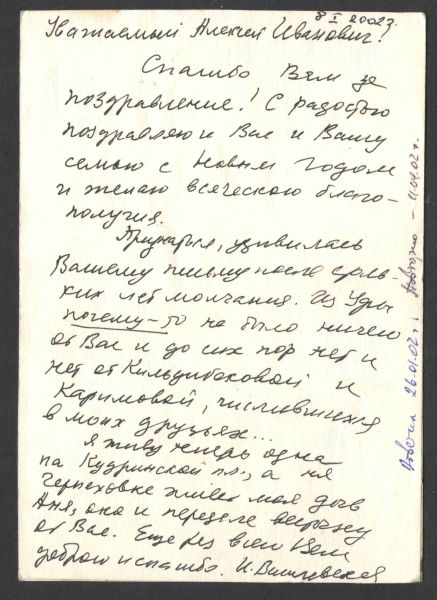 8 I 2002 г.
Уважаемый Алексей Иванович!
Спасибо Вам за
поздравление! С радостью
поздравляю и Вас и Вашу
семью с Новым Годом
и желаю всяческого благо-
получия.
Признаться, удивилась
Вашему письму после столь-
ких лет молчания. Из Уфы
почему-то не было ничего
от Вас и до сих пор нет и
нет от Кильдибековой и
Каримовой, числившихся
в моих друзьях...
Я живу теперь одна
на Кудринской пл., а на
живет моя дочь
Аня, она и передала
от Вас. Еще раз всем Вам
доброго и спасибо. И. Василевская
Ответил 26.01.02 г. Повторно – 4.04.02 г.